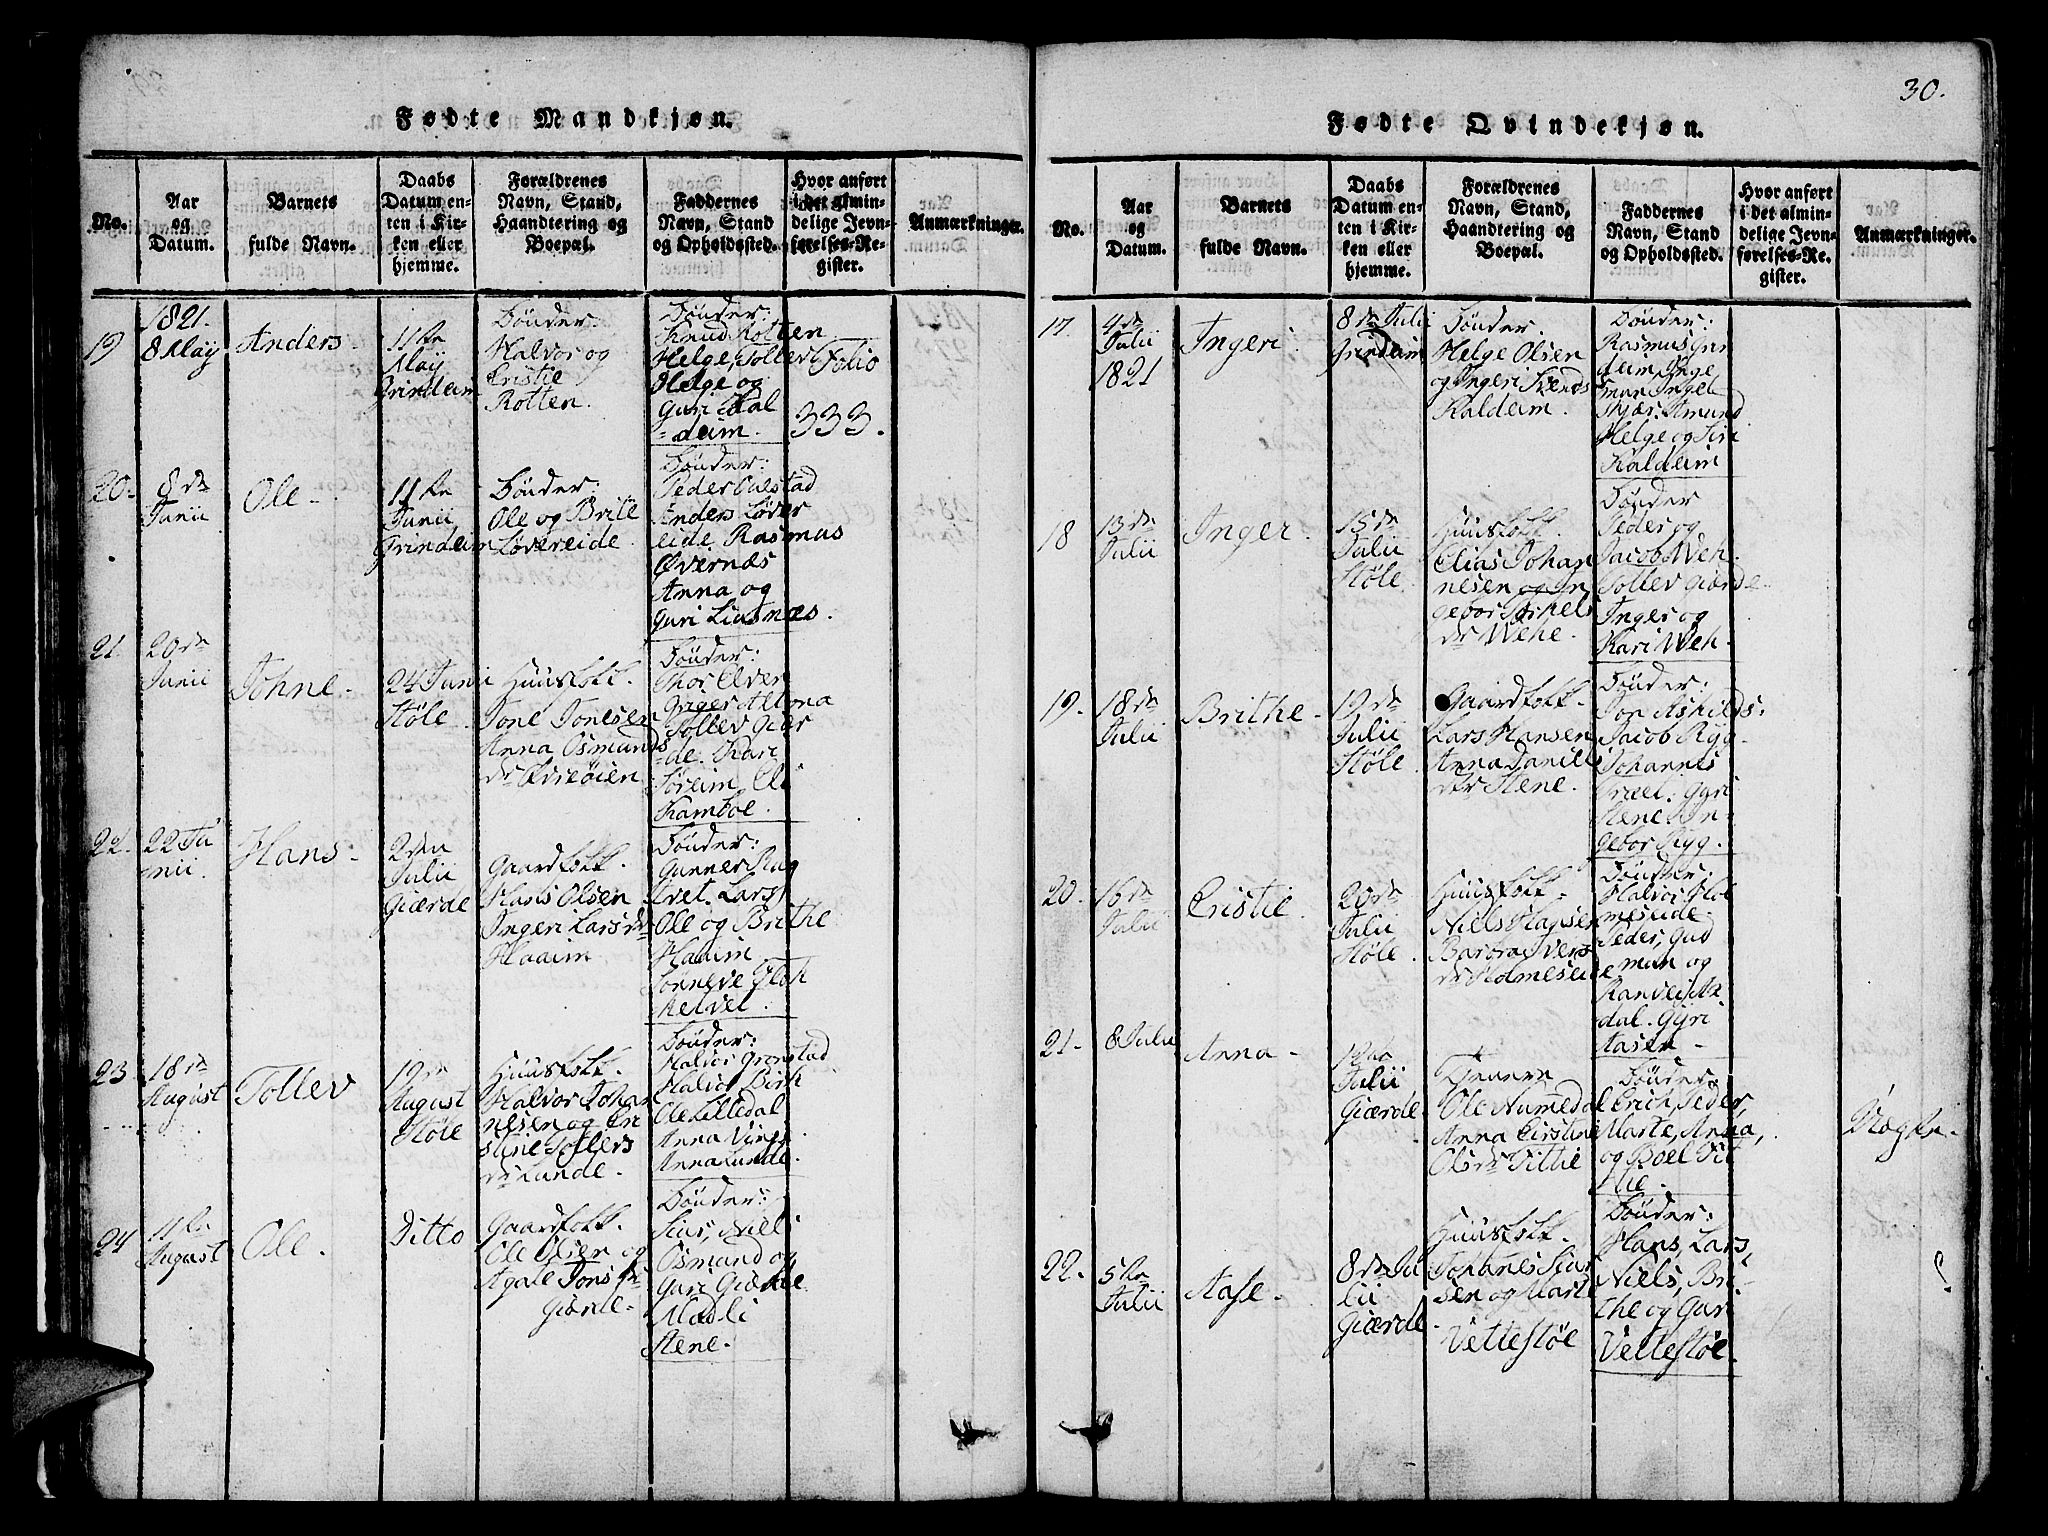 Fødte Mandkjøn.
No.
Aar
og
Datum.
Barnets
fulde Navn.
Daabs
Datum en-
ten i Kir-
ken eller
hjemme.
Forældrenes
Navn, Stand,
Haandtering og
Boepæl.
Faddernes
Navn, Stand
og Opholdssted.
Hvor anført
i det almin-
delige Jevn-
førelses-Re-
gister.
Anmærkninger.
19
1821.
8 May
Anders
11te
May
Grindeim
Bönder:
Halvor og
Cristie
Rotten.
Bönder:
Knud Rotten
Helge, Tollev
Helge og
Guri Kal
deim.
Folio
333.
20.
8de
Junii
Ole
11te
Junii
Grindeim
Bönder:
Ole og Brite
Løvereide.
Bönder:
Peder
Anders Løver
eide Rasmus
Øvernæs
Anna og
Guri Liusnæs.
21
20de
Junii
Johne
24 Junii
Støle
Huusfolk.
Jone Jonesen
Anna Osmunds
dr
Bönder:
Thor Elver
Tollev Giær
de. Kari
Søreim Eli
Kamboe.
22.
22 Ju
nii.
Hans
2den
Julii
Giærde
Gaardfolk.
Hans Olsen
Ingeri Larsdr
Haaim
Bönder:
Gunner
Lars
Ole og Brithe
Haaim
Sønneve
23
18de
August
Tollev
19de
August
Støle
Huusfolk.
Halvor Johan
nesen og Cri
stine Tollevs
dr Lunde.
Bönder:
Halvor Grønstad
Halvor Birk
Ole Lilledal
Anna
Anna Lunde.
24
11te
August
Ole.
Ditto
Gaardfolk.
Ole Olsen og
Agate Jons
Giærde.
Bönder:
Sius, Nilli
Osmund og
Guri Giærde
Madli
Stene.
30.
Fødte Qvindekjøn.
No.
Aar
og
Datum.
Barnets
fulde Navn.
Daabs
Datum en-
ten i Kir-
ken eller
hjemme.
Forældrenes
Navn, Stand,
Haandtering og
Boepæl.
Faddernes
Navn, Stand
og Opholdssted.
Hvor anført
i det almin-
delige Jevn-
førelses-Re-
gister.
Anmærkninger.
17
4de
Julii
1821
Ingeri
8de Julii
Grindeim
Bönder.
Helge Olsen
og Ingeri Svends
Kaldeim.
Bönder:
Rasmus Grin
deim, Inge
man Ingel
skjær. Amund
Helge og Siri
Kaldeim
18
13de
Julii
Inger
15de
Julii
Støle
Huusfolk.
Elias Johan
nesen og In
gebor Torkels
dr Wehe.
Bönder
Peder og
Jacob Weh.
Tollev Giærde
Inger og
Kari Weh.
19.
18de
Julii
Brithe
19de
Julii
Støle.
Gaardfolk.
Lars Hansen
Anna Daniels
dtr Stene.
Bönder:
Jon Askilds:
Jacob Ryg
Johannes
Gyri
Stene In
gebor Ryg.
20.
16de
Julii
Cristie
20de
Julii
Støle.
Huusfolk.
Niels Hansen
Barbra Ivers
dr Holmeseide
Bönder:
Halvor Hol
meseide
Peder, Gud
man og
Ranvei Aa
dal. Gyri
Aasen
21.
8 Julii
Anna
Julii
Giærde
Tienere
Ole Aamedal
Anna Cirstine
Olsdr Vithie
Bönder
Erich, Peder,
Marte, Anna,
og Boel Vit
hie.
22.
5te
Julii
Aase
8de Ju
lii
Giærde
Huusfolk.
Johanes Siur
sen og Marte
Vettestøe
Bönder:
Hans, Lars,
Niels, Bri
the og Guri
Vettestøe.